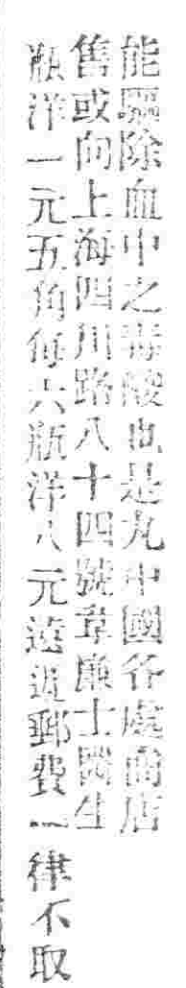 能驅除血中之毒酸也是丸中國各處商店
售或向上海四川路八十四號韋廉士醫生
瓶洋一元五角每六瓶洋八元遠近郵費一律不取